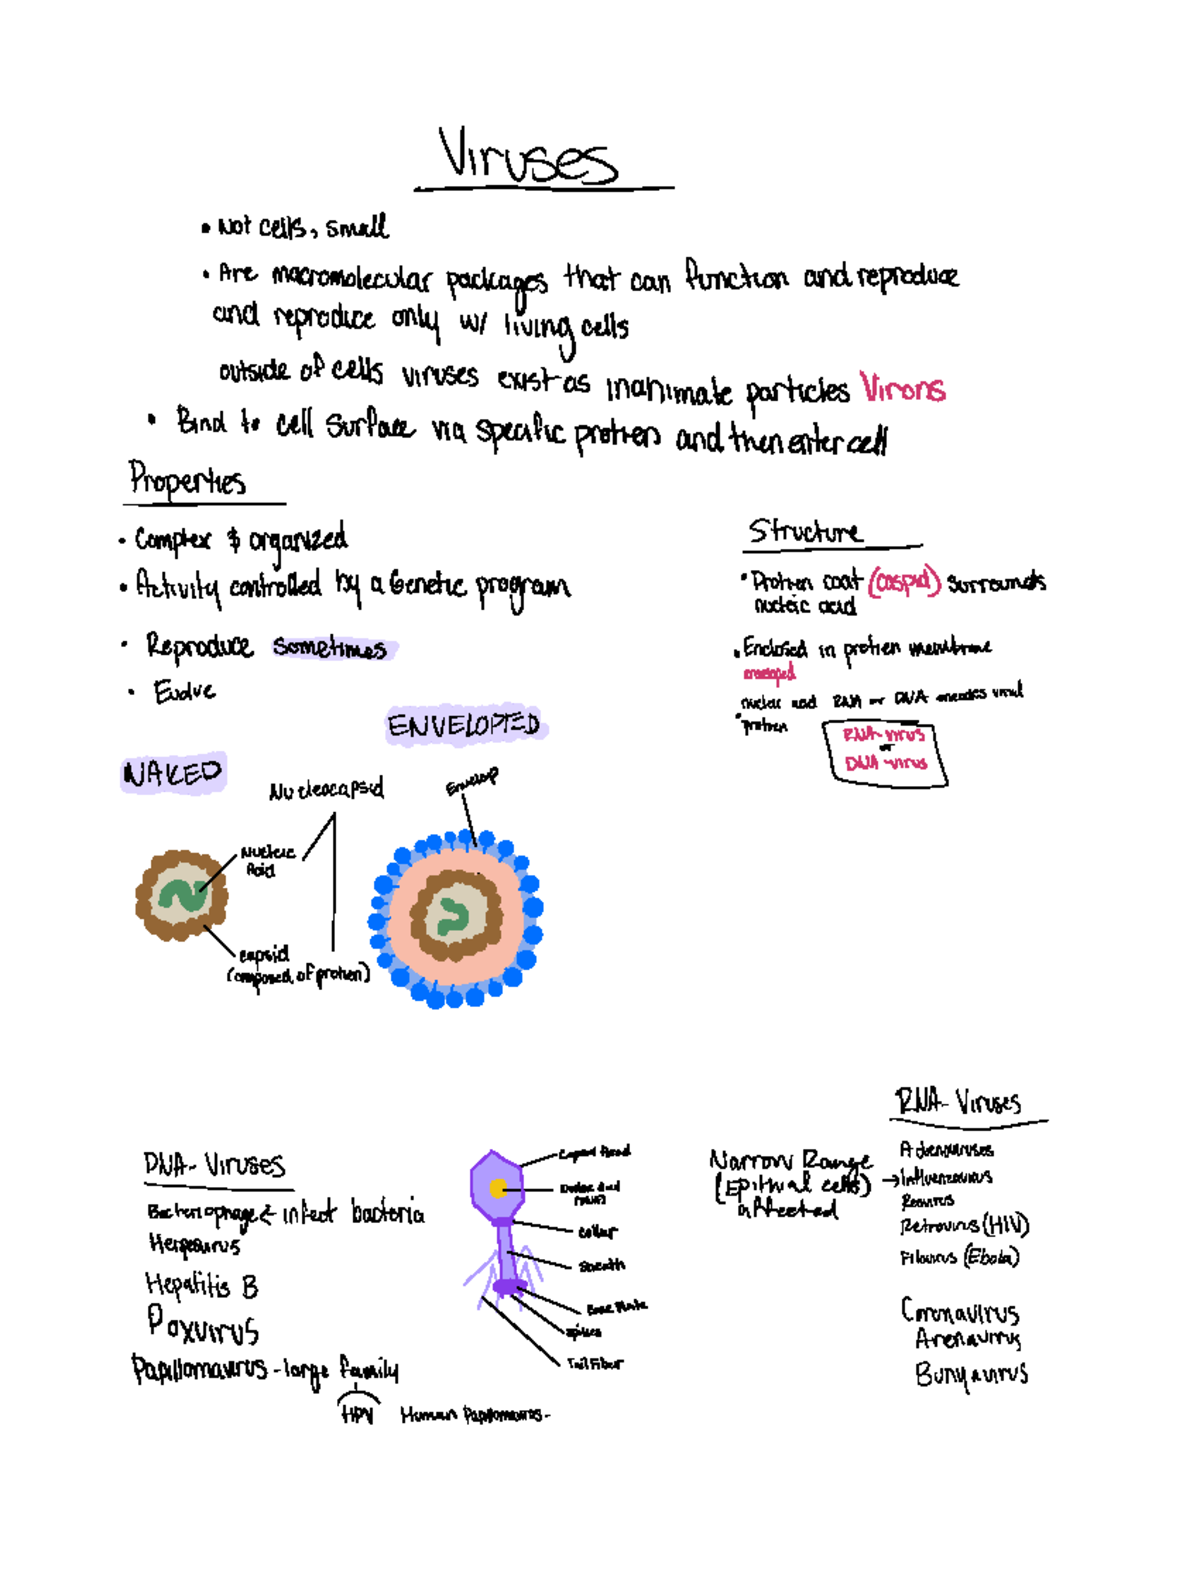 Viruses
• Not cells, small
• Are macromolecular packages that can function and reproduce
and reproduce only w/ living cells
outside of cells viruses exist as inanimate particles Virons
• Bind to cell surface via specific protien and then enter cell
Properties
• Complex & organized
• Activity controlled by a Genetic program
• Reproduce sometimes
• Evolve
Structure
• Protien coat (caspid) surrounds
nucleic acid
• Enclosed in protien membrane
enveloped
nucleic acid RNA or DNA encodes viral
• protien
RNA-virus
or
DNA-virus
NAKED
ENVELOPTED
Nucleocapsid
Envelop
Nucleic
Acid
capsid
(composed of protien)
DNA-Viruses
Bacteriophage ← infect bacteria
Herpesvirus
Hepatitis B
Poxvirus
Papillomavirus - large family
HPV Human Papillomavirus-
Capsid head
Nucleic Acid
collar
Sheath
Base Plate
spikes
Tail Fiber
Narrow Range
(Epithial cells)
affected
RNA-Viruses
Adenoviruses
→ Influenzavirus
Reovirus
Retrovirus (HIV)
Filovirus (Ebola)
Coronavirus
Arenavirus
Bunyavirus